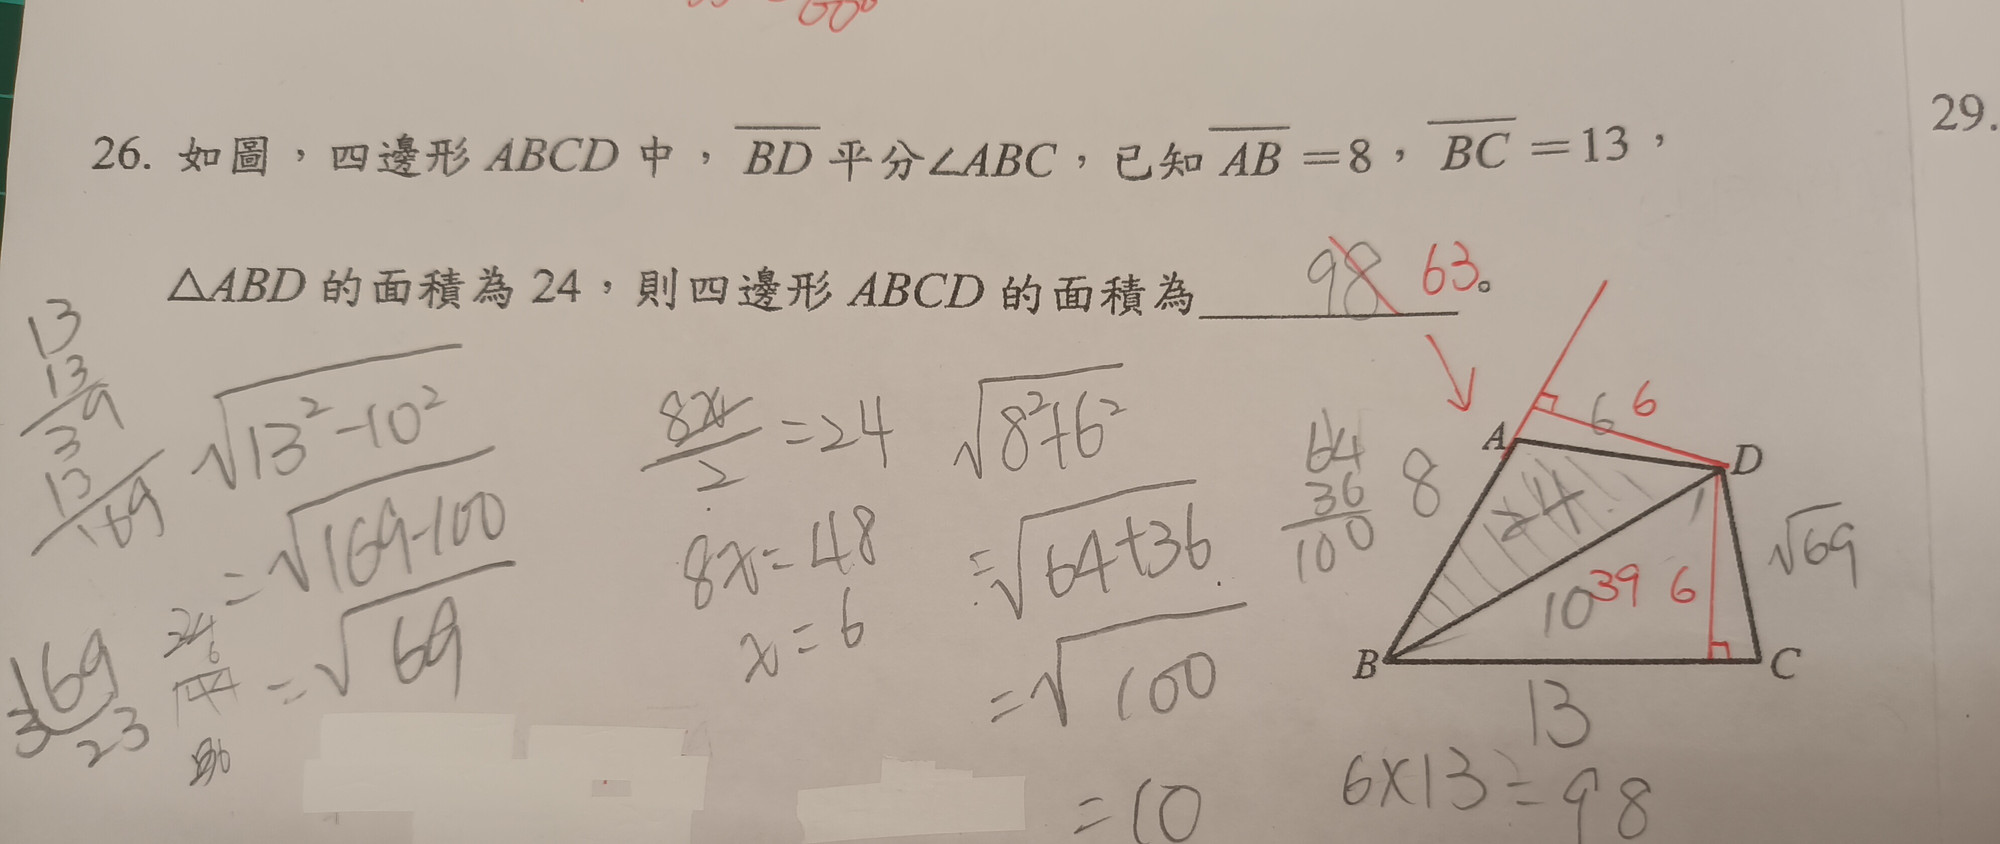 60°
29.
26. 如圖，四邊形 ABCD 中，BD 平分∠ABC，已知 AB＝8，BC＝13，
△ABD 的面積為 24，則四邊形 ABCD 的面積為 98 63。
13
13
39
13
169
169
3 23
√13²-10²
=√169-100
=√69
24
6
8x/2=24
8x=48
x=6
√8²+6²
=√64+36
=√100
=10
64
36
100
A
D
B
C
6 6
8
24
√69
10
39 6
13
6×13=98